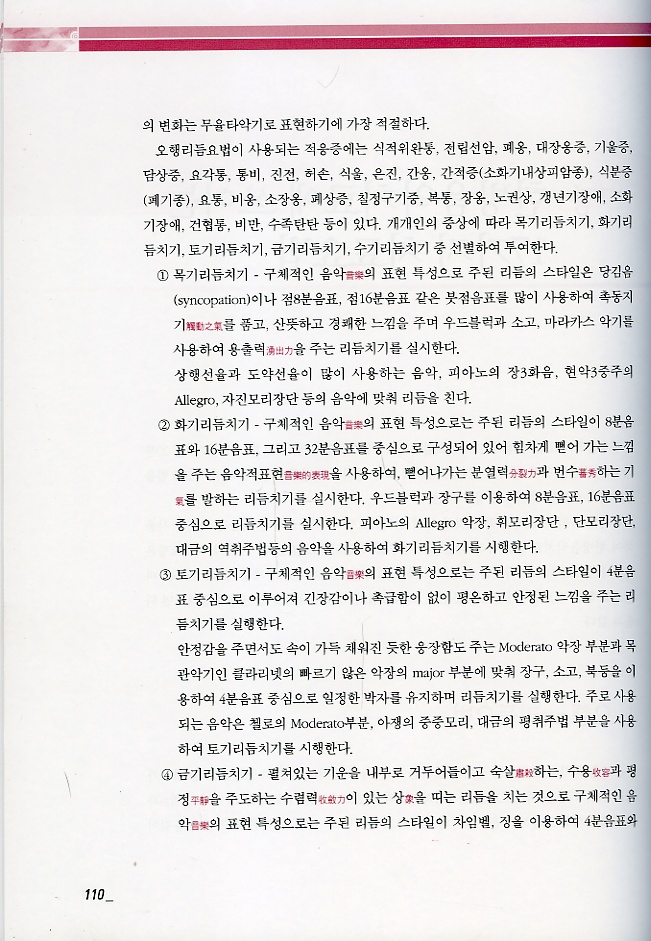 의 변화는 무율타악기로 표현하기에 가장 적절하다.
오행리듬요법이 사용되는 적응증에는 식적위완통, 전립선암, 폐옹, 대장옹증, 기울증,
담상증, 요각통, 통비, 진전, 허손, 식울, 은진, 간옹, 간적증(소화기내상피암종), 식분증
(폐기종), 요통, 비옹, 소장옹, 폐상증, 칠정구기증, 복통, 장옹, 노권상, 갱년기장애, 소화
기장애, 건협통, 비만, 수족탄탄 등이 있다. 개개인의 증상에 따라 목기리듬치기, 화기리
듬치기, 토기리듬치기, 금기리듬치기, 수기리듬치기 중 선별하여 투여한다.
① 목기리듬치기 - 구체적인 음악音樂의 표현 특성으로 주된 리듬의 스타일은 당김음
(syncopation)이나 점8분음표, 점16분음표 같은 붓점음표를 많이 사용하여 촉동지
기觸動之氣를 품고, 산뜻하고 경쾌한 느낌을 주며 우드블럭과 소고, 마라카스 악기를
사용하여 용출력湧出力을 주는 리듬치기를 실시한다.
상행선율과 도약선율이 많이 사용하는 음악, 피아노의 장3화음, 현악3중주의
Allegro, 자진모리장단 등의 음악에 맞춰 리듬을 친다.
② 화기리듬치기 - 구체적인 음악音樂의 표현 특성으로는 주된 리듬의 스타일이 8분음
표와 16분음표, 그리고 32분음표를 중심으로 구성되어 있어 힘차게 뻗어 가는 느낌
을 주는 음악적표현音樂的表現을 사용하여, 뻗어나가는 분열력分裂力과 번수蕃秀하는 기
氣를 발하는 리듬치기를 실시한다. 우드블럭과 장구를 이용하여 8분음표, 16분음표
중심으로 리듬치기를 실시한다. 피아노의 Allegro 악장, 휘모리장단 , 단모리장단,
대금의 역취주법등의 음악을 사용하여 화기리듬치기를 시행한다.
③ 토기리듬치기 - 구체적인 음악音樂의 표현 특성으로는 주된 리듬의 스타일이 4분음
표 중심으로 이루어져 긴장감이나 촉급함이 없이 평온하고 안정된 느낌을 주는 리
듬치기를 실행한다.
안정감을 주면서도 속이 가득 채워진 듯한 웅장함도 주는 Moderato 악장 부분과 목
관악기인 클라리넷의 빠르기 않은 악장의 major 부분에 맞춰 장구, 소고, 북등을 이
용하여 4분음표 중심으로 일정한 박자를 유지하며 리듬치기를 실행한다. 주로 사용
되는 음악은 첼로의 Moderato부분, 아쟁의 중중모리, 대금의 평취주법 부분을 사용
하여 토기리듬치기를 시행한다.
④ 금기리듬치기 - 펼쳐있는 기운을 내부로 거두어들이고 숙살肅殺하는, 수용收容과 평
정平靜을 주도하는 수렴력收斂力이 있는 상象을 띠는 리듬을 치는 것으로 구체적인 음
악音樂의 표현 특성으로는 주된 리듬의 스타일이 차임벨, 징을 이용하여 4분음표와
110_